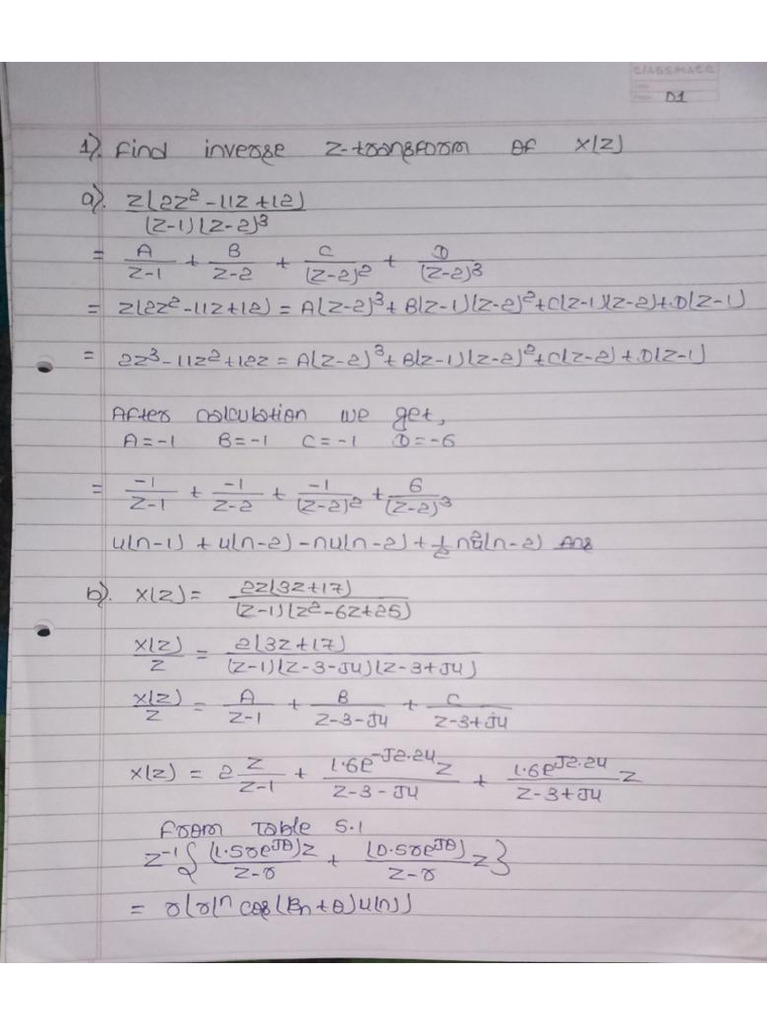 CLASSMATE
01
1). Find inverse Z-transform of X(Z)
a). Z(2Z²-11Z+12)
(Z-1)(Z-2)³
= A/Z-1 + B/Z-2 + C/(Z-2)² + D/(Z-2)³
= Z(2Z²-11Z+12) = A(Z-2)³+B(Z-1)(Z-2)²+C(Z-1)(Z-2)+D(Z-1)
= 2Z³-11Z²+12Z = A(Z-2)³+B(Z-1)(Z-2)²+C(Z-2)+D(Z-1)
After calculation we get,
A=-1 B=-1 C=-1 D=-6
= -1/Z-1 + -1/Z-2 + -1/(Z-2)² + 6/(Z-2)³
u(n-1) + u(n-2) - nu(n-2) + n²u(n-2) Ans
b). X(Z) = 2Z(3Z+17)/(Z-1)(Z²-6Z+25)
X(Z)/Z = 2(3Z+17)/(Z-1)(Z-3-J4)(Z-3+J4)
X(Z)/Z = A/Z-1 + B/Z-3-J4 + C/Z-3+J4
X(Z) = 2 Z/Z-1 + 1.6e^-J2.24 Z/Z-3-J4 + 1.6e^J2.24/Z-3+J4 Z
From Table 5.1
Z⁻¹{(1.5re^Jθ)Z/Z-r + (0.5re^Jθ)/Z-r Z}
= r(r)ⁿ cos(Bn+θ)u(n))